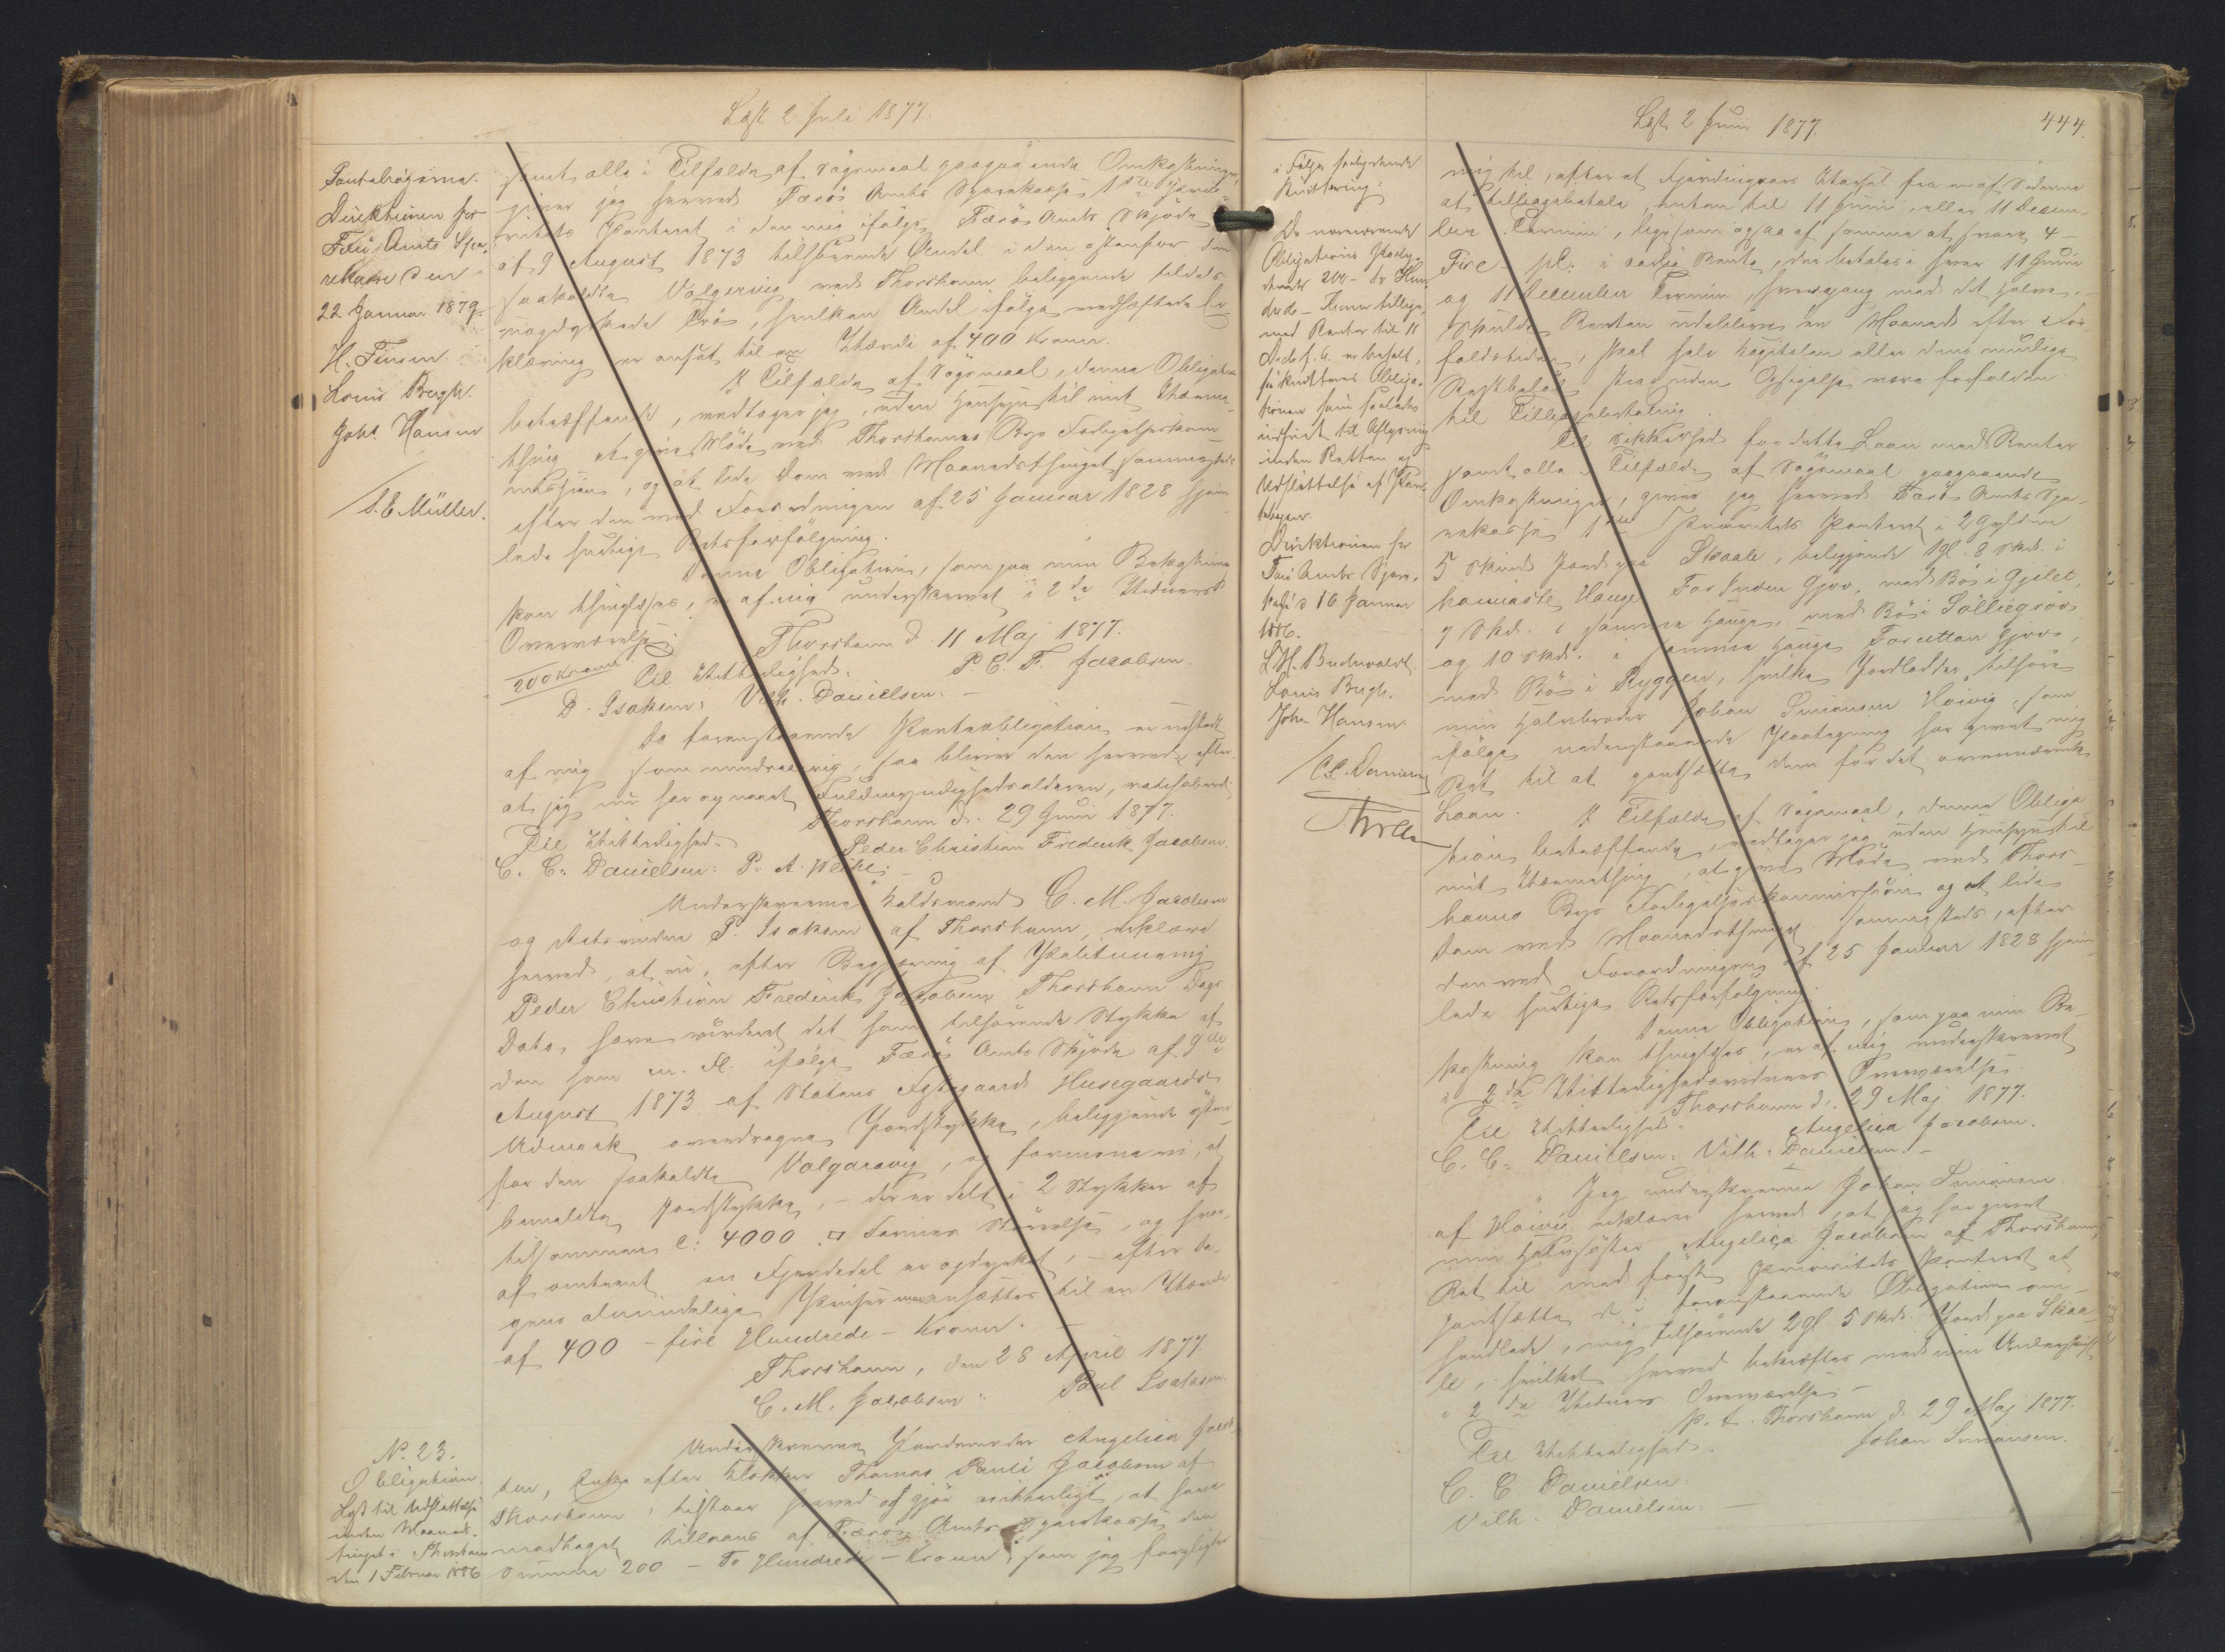 Læst 2 Juli 1877.
Pantebøgerne.
Direktionen for
Færö Amts Spa-
rekasse den
22 Januar 1879.
H. Finsen
Louis Bergh.
Johs. Hansen
/S. E. Müller.
samt alle i Tilfælde af Søgsmaal paagaaende Omkostninger,
giver jeg herved Færö Amts Sparekasse 1ste Priori-
tets Panteret i den mig ifølge Færö Amts Skjöde
af 9 August 1873 tilhörende Andel i den östenfor den
saakaldte Valgerveg ved Thorshavn beliggende tildels
uopdyrkede Trö, hvilken Andel ifølge vedheftede Er-
klæring er ansat til en Værdi af 400 Kroner.
I Tilfælde af Søgsmaal, denne Obligation
betræffende, vedtager jeg, uden Hensyn til mit Værne-
thing at give Møde ved Thorshavns Byes Forligelseskom-
mission, og at lide Dom ved Maanedsthinget sammesteds
efter den ved Forordningen af 25 Januar 1828 hjem-
lede hurtige Retsforfölgning.
Denne Obligation, som paa min Bekostning
kan thinglæses, er af mig underskrevet i 2de Vidners
Overværelse.
Thorshavn d. 11 Maj 1877.
200 Kroner
Til Vitterlighed.
P. C. F. Jacobsen.
D. Isaksen: Vilh. Danielsen. -
Da foranstaaende Panteobligation er udstedt
af mig som mindreaarig, saa bliver den herved, efter
at jeg nu har opnaaet Fuldmyndighedsalderen, ratihaberet
Thorshavn d. 29 Juni 1877.
Til Vitterlighed.
Peder Christian Frederik Jacobsen.
C. C. Danielsen: P. A. Weihe; -
Undertegnede Valdsmand C. M. Jacobsen
og Retsvidne P. Isaksen af Thorshavn, erklære
herved, at vi, efter Begjæring af Skolelærer
Peder Christian Frederik Jacobsen Thorshavn Dags
Dato, have vurderet det ham tilhörende Stykke af
den ham m. fl. ifølge Færös Amts Skjöde af 9de
August 1873 af Statens Festegaard Husegaards
Udmark overdragne Jordstykke, beliggende östen-
for den saakaldte Valgaraveg, og formene vi, at
bemeldte Jordstykke, - der er delt i 2 Stykker af
tilsammen c: 4000 □ Favnes Störrelse, og hvor-
af omtrent en Fjerdedel er opdyrket, - efter Da-
gens almindelige Priser ansættes til en Værdi
af 400 - fire Hundrede - Kroner. -
Thorshavn, den 28 April 1877
C. M. Jacobsen: Poul Isaksen.
No. 23.
Obligation.
Lyst til Udslettelse
inden Maaneds-
tinget i Thorshavn
den 1 Februar 1886
Underskrevne Jordemoder Angelica Jacob-
sen, Enke efter Klokker Thomas Pauli Jacobsen af
Thorshavn, tilstaar herved og gjör vitterligt, at have
modtaget tillaans af Færös Amts Sparekasse den
Summa 200 - To Hundrede - Kroner, som jeg forpligter
Læst 2 Juni 1877.
444.
i Følge saalydende
Kvittering:
Da nærværende
Obligations Paaly-
dende 200 - to Hun-
drede - Kroner tillige
med Renter til 11
Decbr. f. A. er betalt,
saa kvitteres Obliga-
tionen som saaledes
indfriet til Aflysning
inden Retten og
Udslettelse af Pan-
tebogen.
Direktionen for
Færö Amts Spare-
kasse d 16 Januar
1886.
L. H. Buchwaldt.
Louis Bergh.
John Hansen
/C. C. Danielsen
mig til, efter et Fjerdingaars Varsel fra en af Siderne
at tilbagebetale, enten til 11 Juni, eller 11 Decem-
ber Termin, ligesom ogsaa af samme at svare 4 -
Fire - pCt. i aarlig Rente, der betales i hver 11 Juni
og 11 December Termin, hvergang med det halve.
Skulde Renten udeblive en Maaned efter For-
faldstiden, skal hele Kapitalen eller dens mulige
Restbelöb strax uden Opsigelse være forfalden
til Tilbagebetaling.
Til Sikkerhed for dette Laan med Renter
samt alle i Tilfælde af Søgsmaal paagaaende
Omkostninger, giver jeg herved Færö Amts Spa-
rekasse 1ste Prioritets Panteret i 2 Gylden
5 Skind Jord paa Skaale, beliggende 1 gl. 8 Skd. i
hannaste Hauge For Inden Gjov, med Bö i Gjilet,
7 Skd. i samme Hauge, med Bö i Söllegröv
og 10 Skd. i samme Hauge Forutten Gjov,
med Bö i Ryggen, hvilke Jordlodder tilhöre
min Halvbroder Johan Simonsen Hoivig, som
ifølge nedenstaaende Paategning har givet mig
Ret til at pantsætte dem for det ovennævnte
Laan.
I Tilfælde af Søgsmaal, denne Obliga-
tion betræffende, vedtager jeg uden Hensyn til
mit Værnething, at give Møde ved Thors-
havns Byes Forligelseskommission og at lide
Dom ved Maanedsthinget sammesteds, efter
den ved Forordningen af 25 Januar 1828 hjem-
lede hurtige Retsforfölgning.
Denne Obligation, som paa min Be-
kostning kan thinglæses, er af mig underskrevet
i 2de Vitterlighedsvidners Overværelse.
Thorshavn d. 29 Maj 1877.
Til Vitterlighed.
Angelica Jacobsen.
C. C. Danielsen: Vilh. Danielsen. -
Jeg underskrevne Johan Simonsen
af Hoivig erklærer herved, at jeg har givet
min Halvsöster Angelica Jacobsen af Thorshavn,
Ret til med förste Prioritets Panteret at
pantsætte de i foranstaaende Obligation om-
handlede, mig tilhörende 2 gl 5 Skd. Jord paa Skaa-
le, hvilket herved bekræftes med min Underskrift
i 2de Vidners Overværelse. -
p. t. Thorshavn d. 29 Maj 1877.
Til Vitterlighed.
Johan Simonsen.
C. C. Danielsen:
Vilh. Danielsen. -